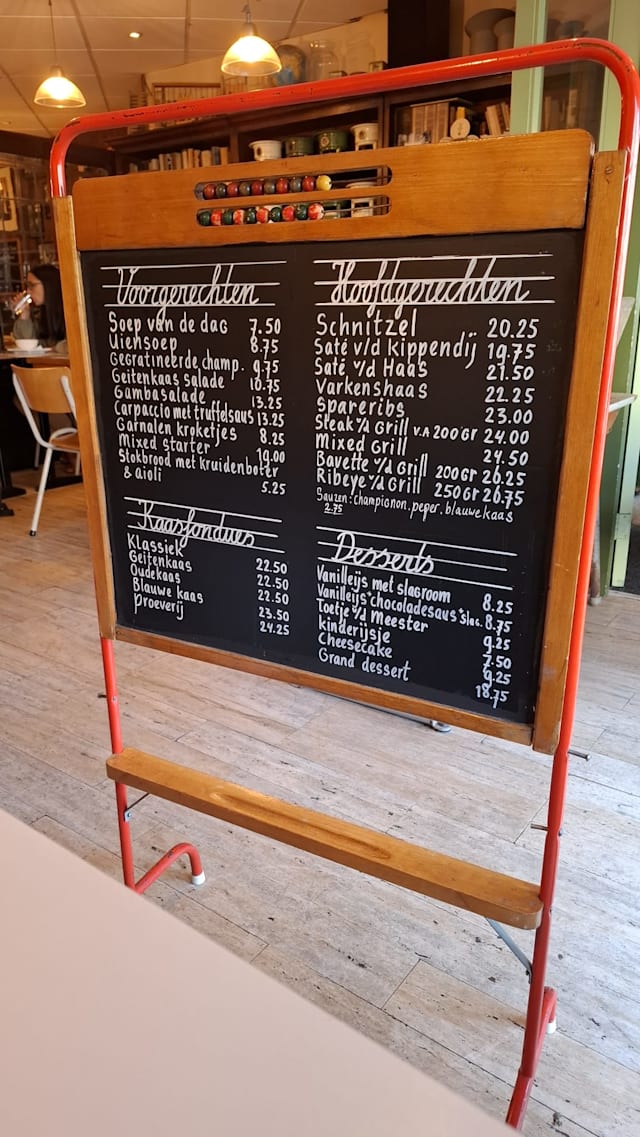 Voorgerechten
Soep van de dag 7.50
Uiensoep 8.75
Gegratineerde champ. 9.75
Geitenkaas salade 10.75
Gambasalade 13.25
Carpaccio met truffelsaus 13.25
Garnalen kroketjes 8.25
Mixed starter 19.00
Stokbrood met kruidenboter
& aioli 5.25
Kaasfondues
Klassiek 22.50
Geitenkaas 22.50
Oudekaas 22.50
Blauwe kaas 23.50
Proeverij 24.25
Hoofdgerechten
Schnitzel 20.25
Saté v/d kippendij 19.75
Saté v/d Haas 21.50
Varkenshaas 22.25
Spareribs 23.00
Steak v/d Grill v.a 200gr 24.00
Mixed Grill 24.50
Bavette v/d Grill 200gr 26.25
Ribeye v/d Grill 250gr 26.75
Sauzen: champignon. peper. blauwe kaas
2.75
Desserts
Vanilleijs met slagroom 8.25
Vanilleijs*chocoladesaus*slag. 8.75
Toetje v/d Meester 9.25
kinderijsje 7.50
Cheesecake 9.25
Grand dessert 18.75